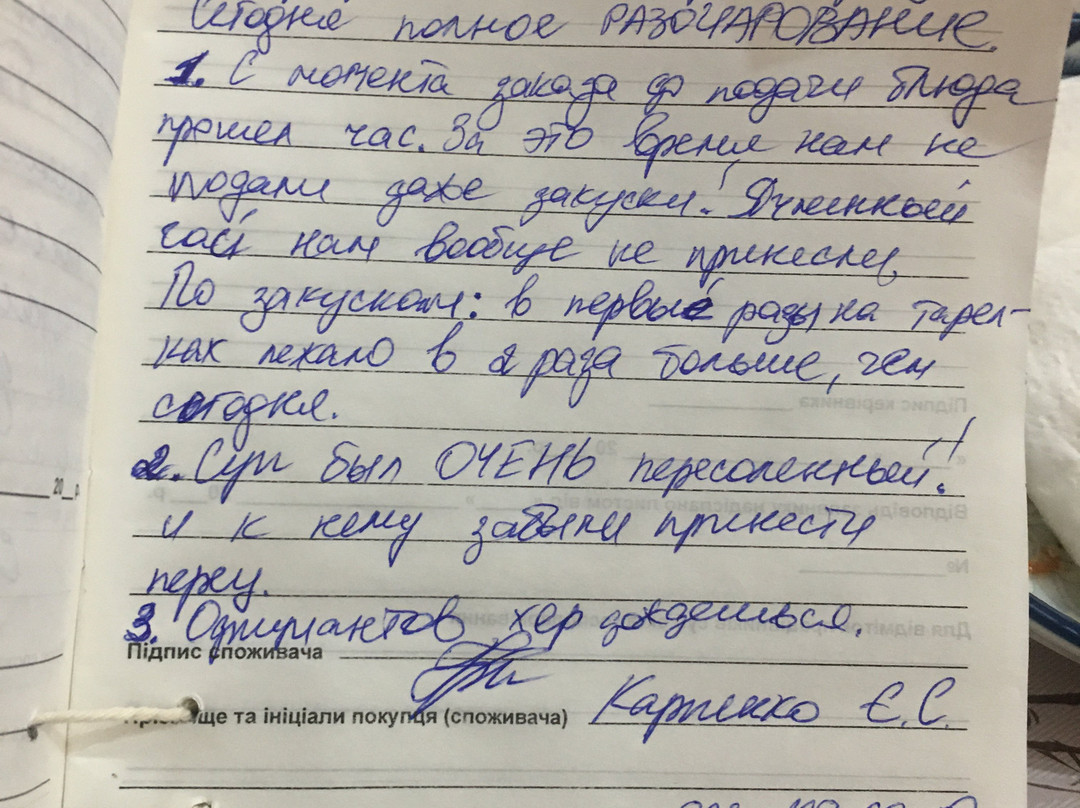 Сегодня полное РАЗОЧАРОВАНИЕ.
1. С момента заказа до подачи блюда
прошел час. За это время нам не
подали даже закуски! Ячменный
чай нам вообще не принесли,
По закускам: в первые разы на тарел-
ках лежало в 2 раза больше, чем
сегодня.
Підпис керівника
20
2. Суп был ОЧЕНЬ пересоленный!
Відповідь заявнику надіслано листом від « » 20 р.
20 р.
и к нему забыли принести
№
перец.
3. Официантов хер дождешься.
Підпис споживача
ще та ініціали покупця (споживача) Карпенко Є.С.